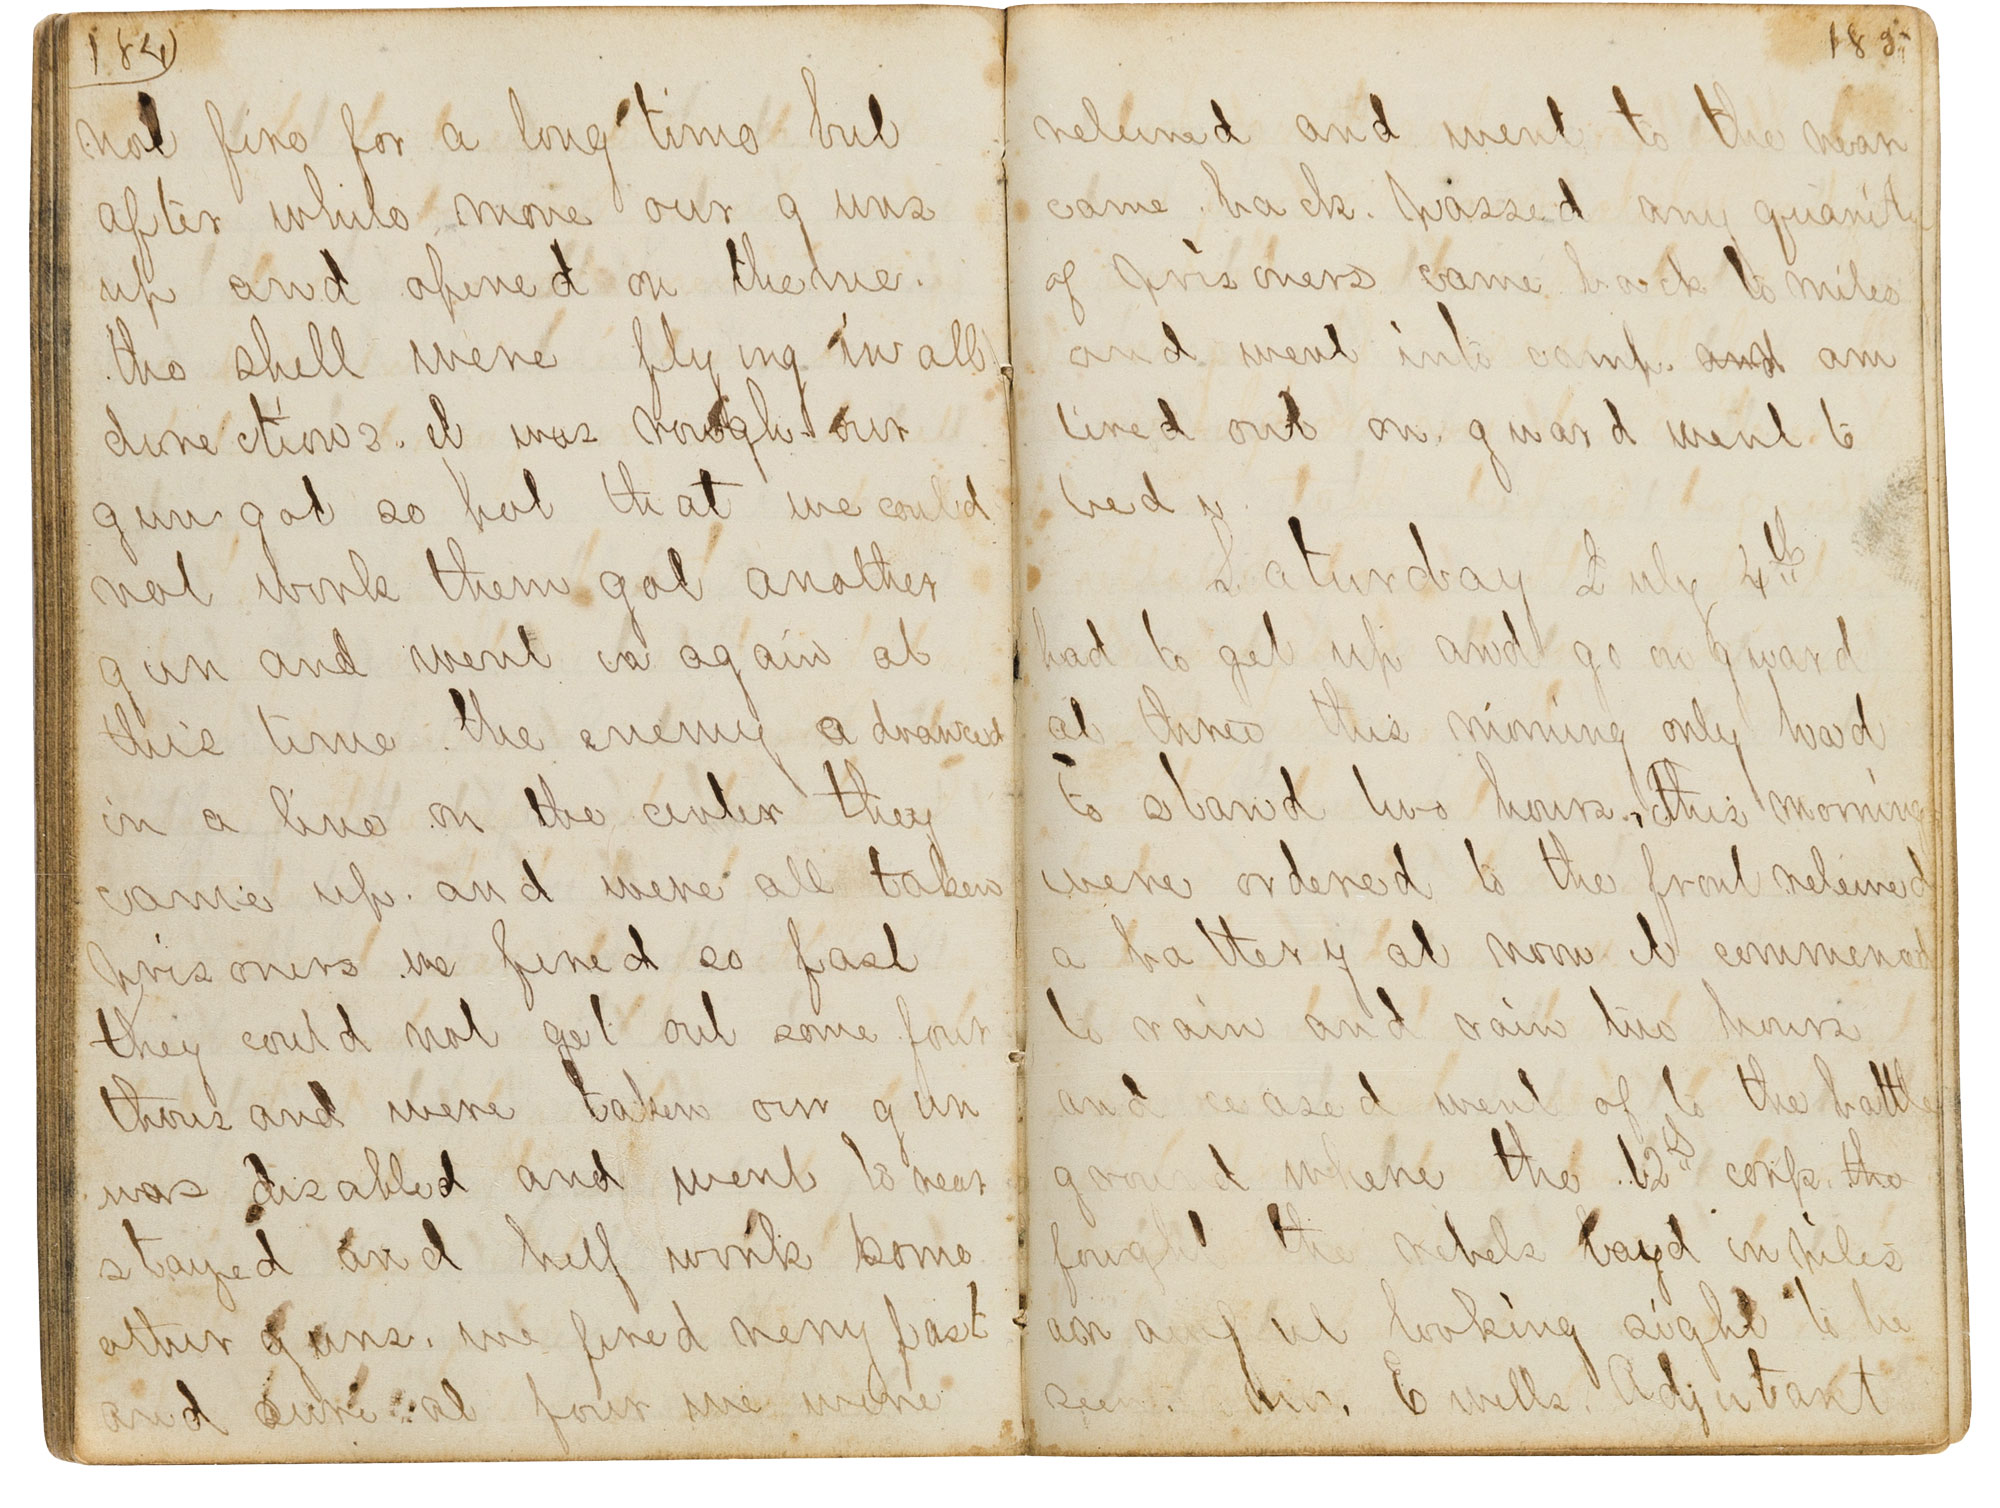 184
not fire for a long time but
after while move our guns
up and opened on theme.
the shell were flying in all
directions. it was rough. our
gun got so hot that we could
not work them got another
gun and went in again at
this time the enemy advanced
in a line on the center they
came up. and were all taken
prisoners we fired so fast
they could not get out some four
thousand were taken our gun
was disabled and went to rear
stayed and help work some
other guns. we fired very fast
and sure at four we were
185
releived and went to the rear
came back. passed any quanity
of prisoners came back to miles
and went into camp. and am
tired out on guard went to
bed
Saturday July 4th
had to get up and go on guard
at three this morning only had
to stand two hours. This morning
were ordered to the front releived
a battery at noon it commenced
to rain and rain two hours
and ceased went of to the battle
ground where the 12th corps. the
fought the rebels layd in piles
an awful looking sight to be
seen. E wells. Adjutant